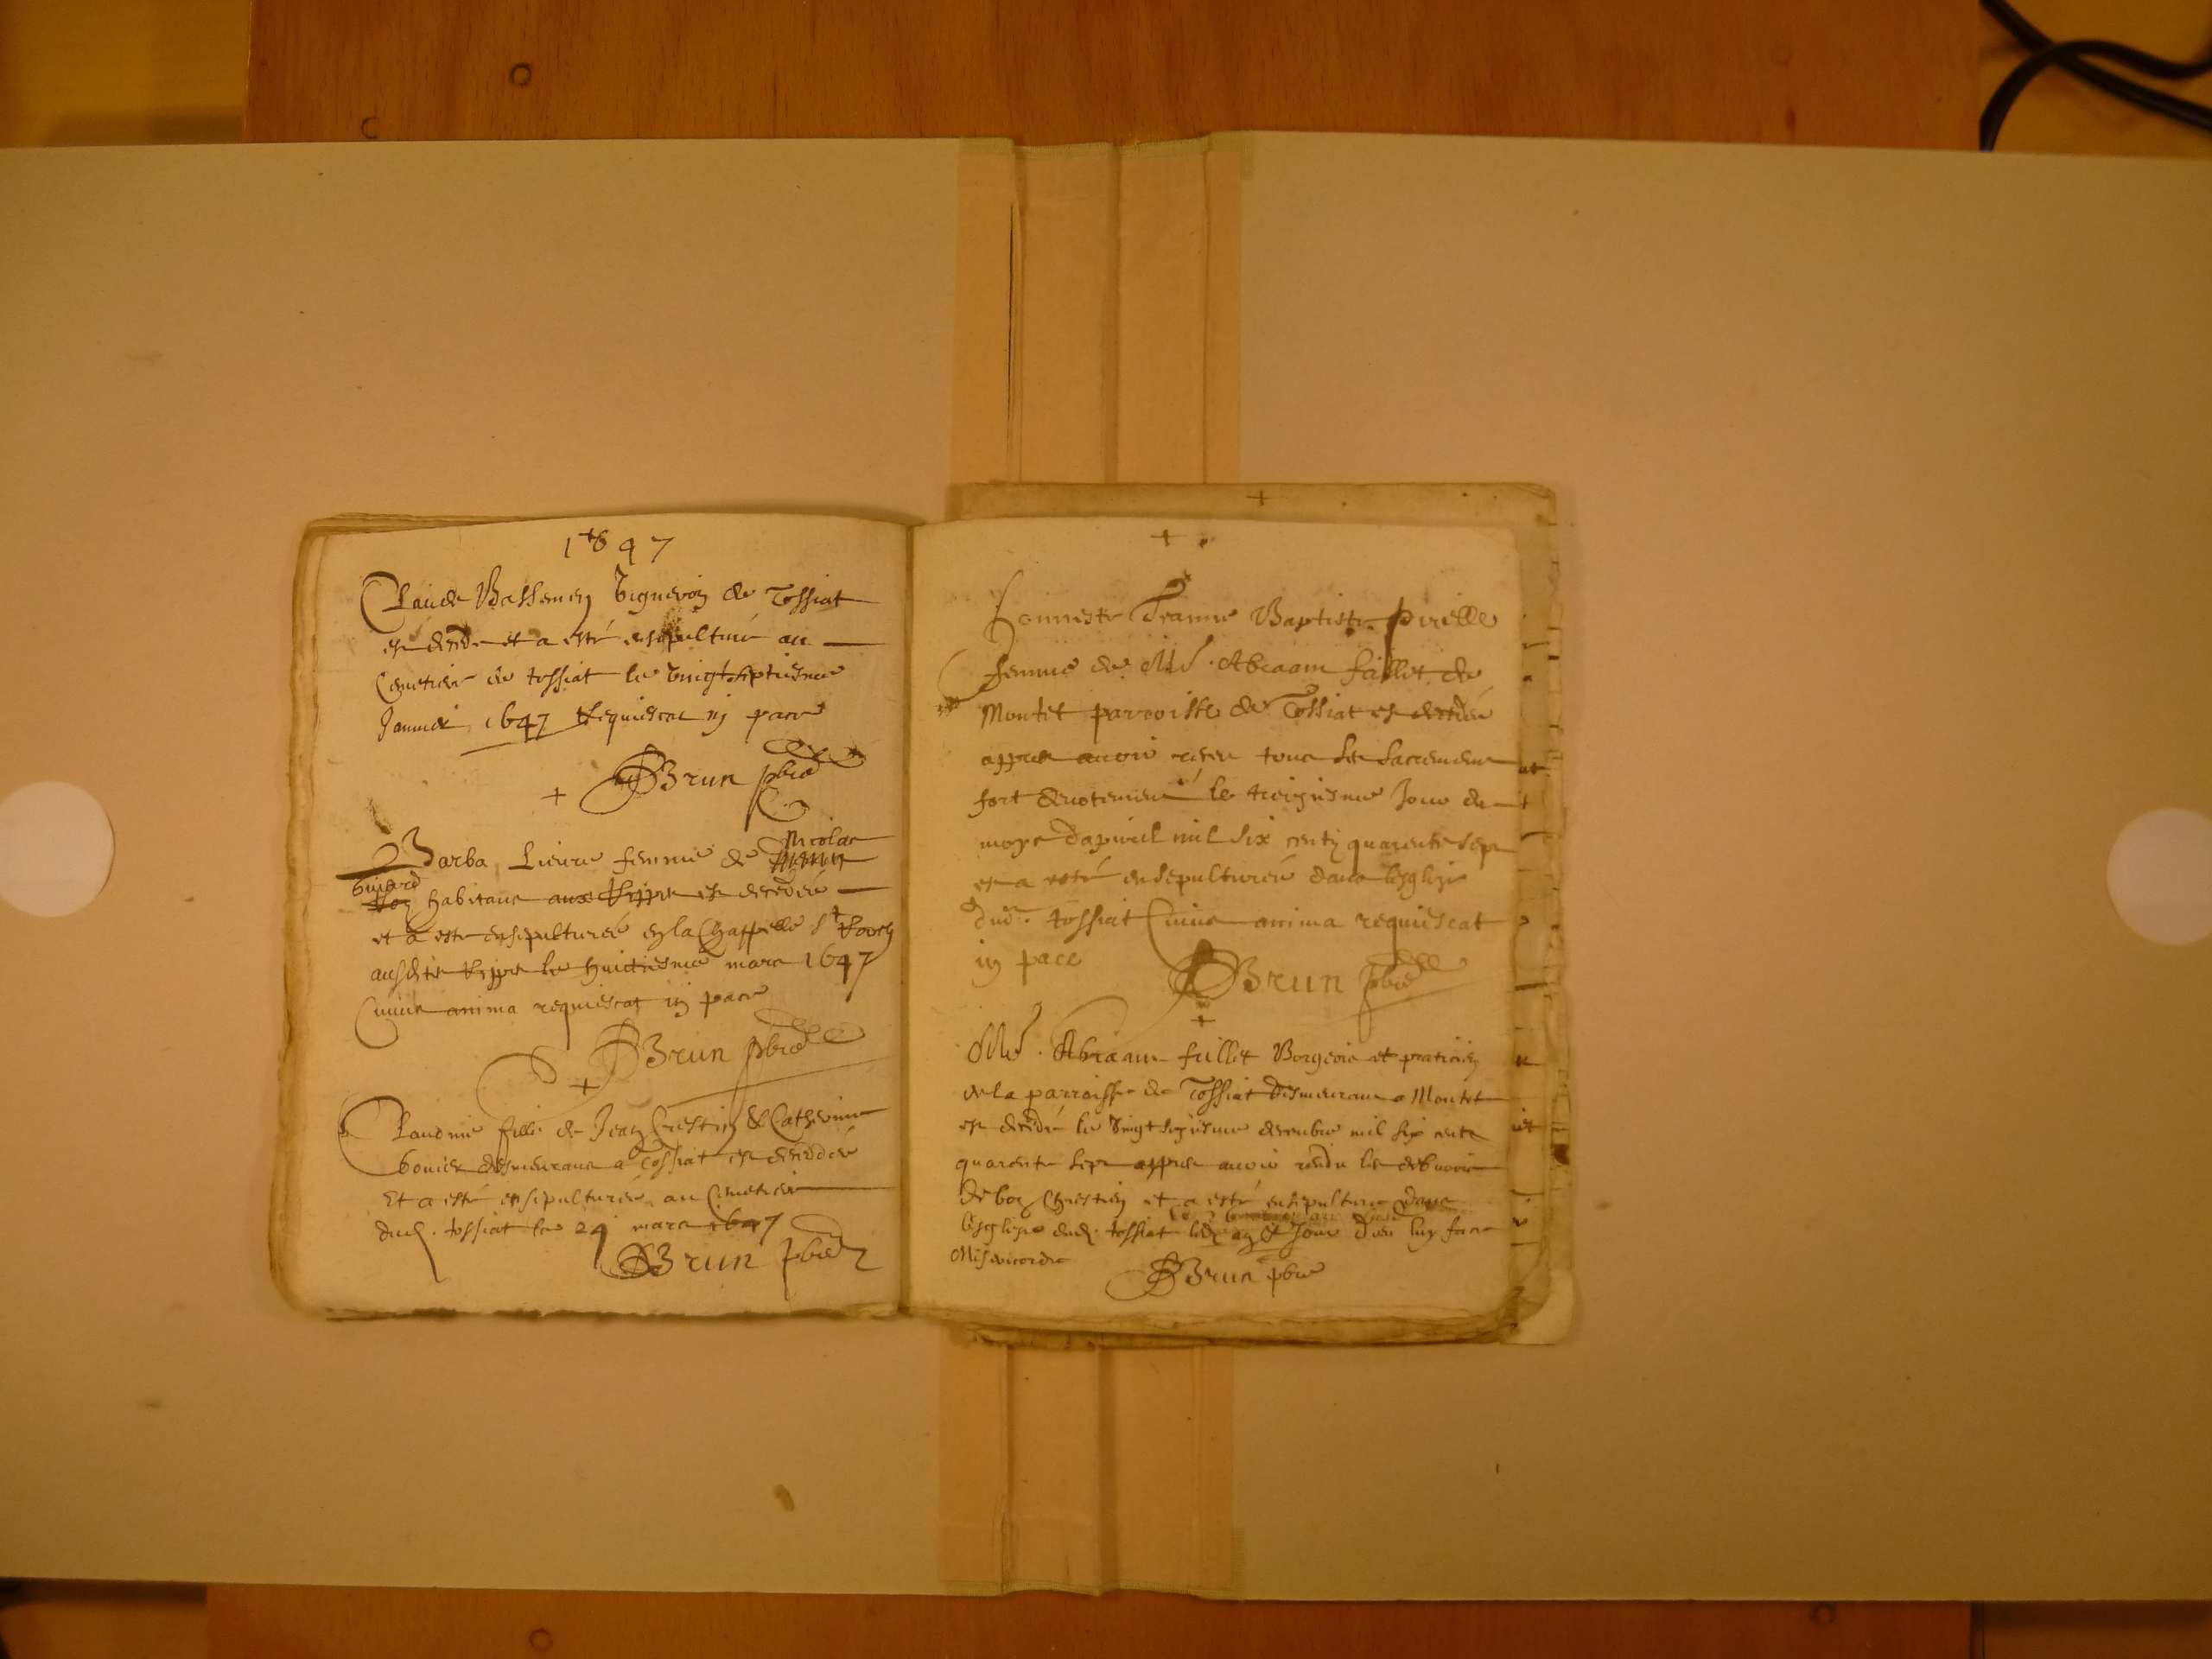 1647
Claude Bassency vigneron de Tossiat
est decede et a esté ensepulturé au
Cemetiere de tossiat le vingt septiesme
Januier 1647 Requiescat in pace
Brun pbre
Barba Lieure femme de Nicolas
buiard habitans aux Rippes est decedée
et a esté ensepulturée en la Chappelle St
ausdites Rippes le huictiesme mars 1647
Cuius anima requiescat in pace
Brun pbre
Claudine fille de Jean Crestin & Catherine
bouier desmeurans a Tossiat est decedée
Et a esté ensepulturée au Cemetiere
dud. tossiat le 24 mars 1647
Brun pbre
honneste Jeanne Baptiste
femme de Me. Abraam faillet de
Montet parroisse de Tossiat est decedée
appres auoir receu tous les Sacremens
fort deuotement le treiziesme Jour du
moys dapuril mil six centz quarente sept
et a esté ensepulturée dans lesglize
dud. tossiat Cuius anima requiescat
in pace
Brun pbre
Me. Abraam faillet Borgeois et praticien
de la parroisse de Tossiat desmeurant a Montet
est decedé le vingt septiesme decembre mil six cents
quarente sept appres auoir rendu les debuoirs
de bon Chrestien et a esté ensepulturé dans
lesglize dud. tossiat led. an & Jour Dieu luy face
Misericorde
Brun pbre